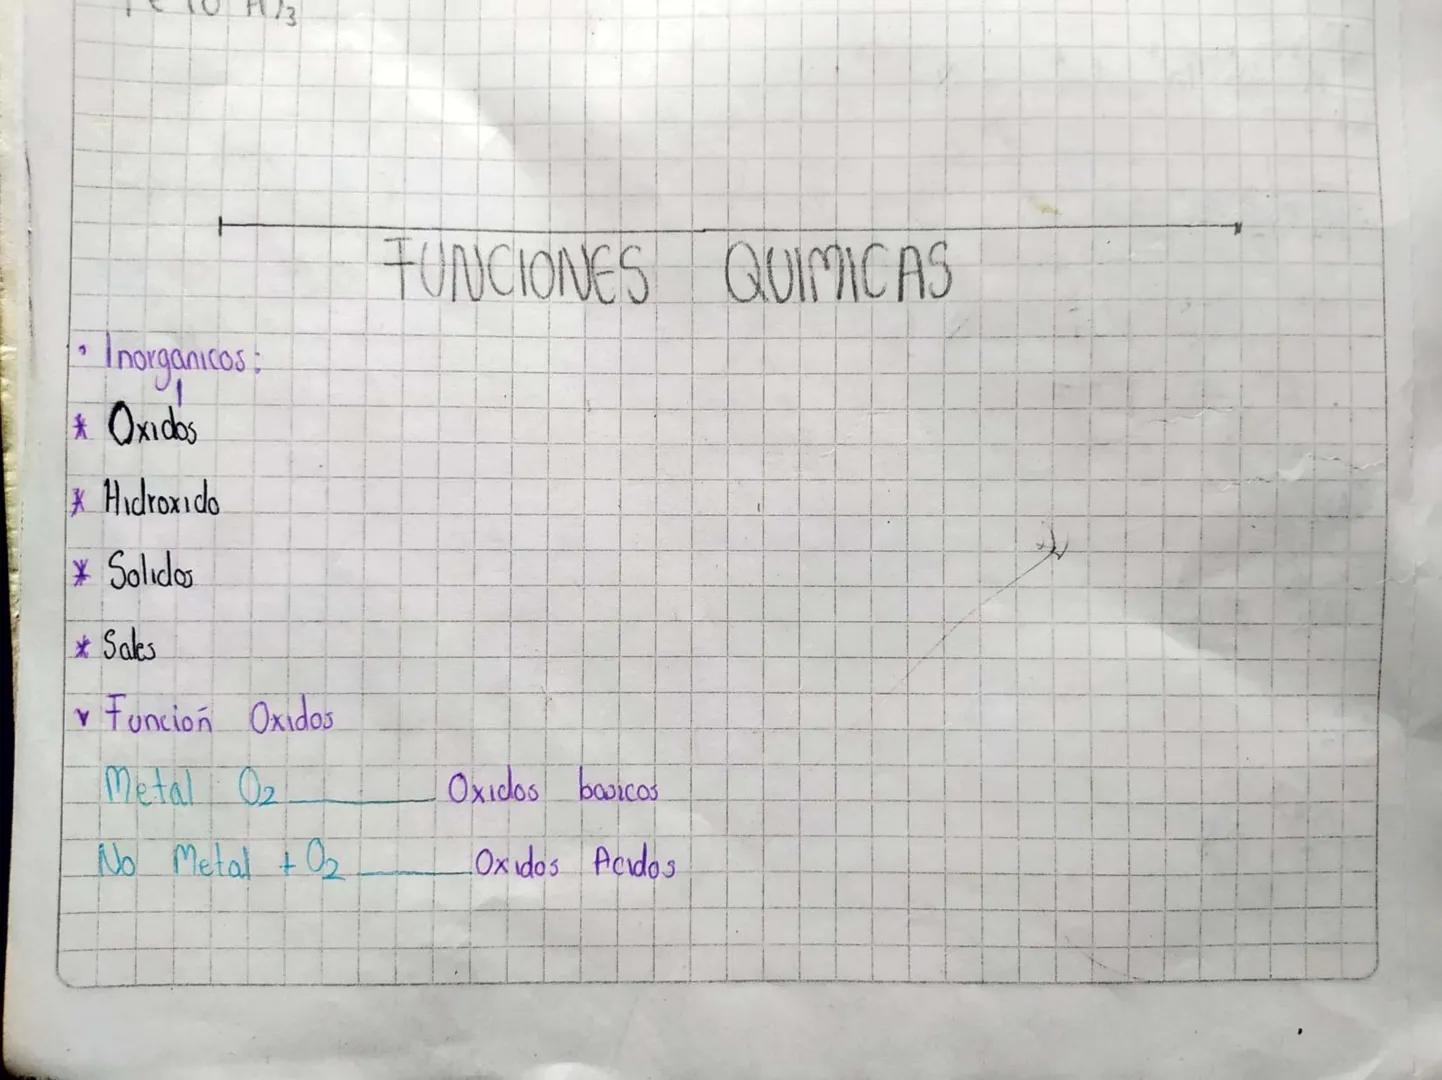 FUNCIONES QUIMICAS
• Inorganicos:
* Oxidos
* Hidroxido
* Solidos
* Sales
v Función Oxidos
Metal O2 ______ Oxidos basicos
No Metal + O2 ______ Oxidos Acidos